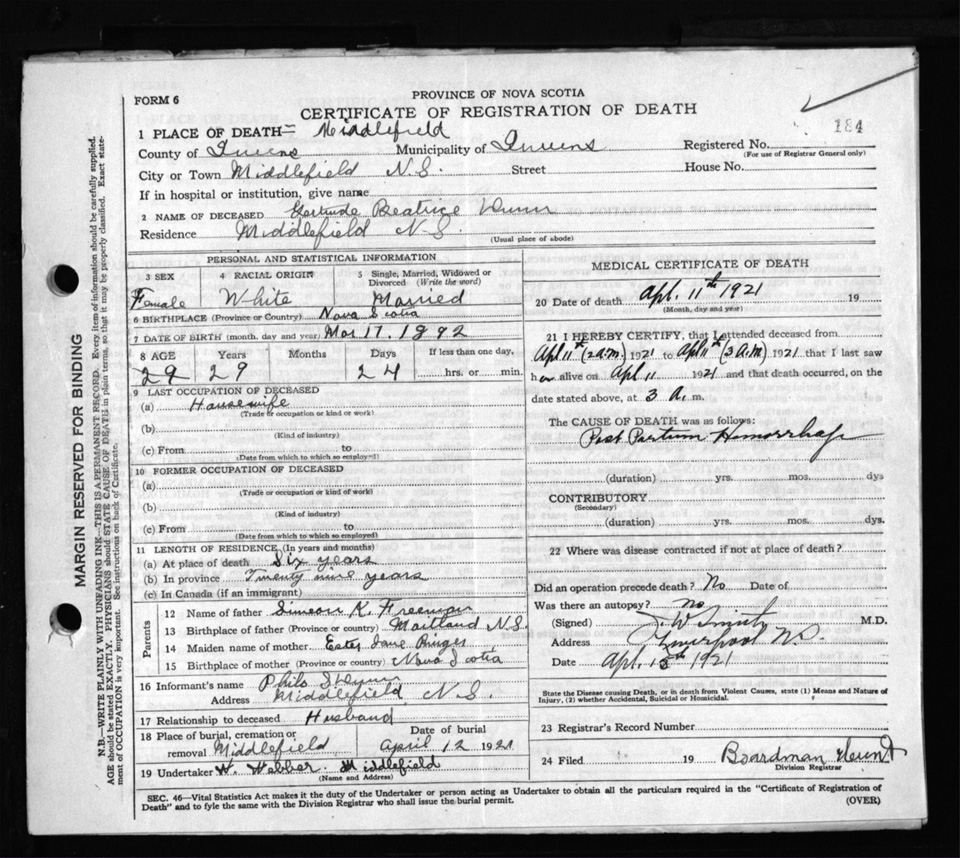 FORM 6
PROVINCE OF NOVA SCOTIA
CERTIFICATE OF REGISTRATION OF DEATH
184
1 PLACE OF DEATH= Middlefield
County of Queens Municipality of Queens Registered No.
(For use of Registrar General only)
City or Town Middlefield N.S. Street House No.
If in hospital or institution, give name
2 NAME OF DECEASED Gertrude Beatrice
Residence Middlefield N-S.
(Usual place of abode)
PERSONAL AND STATISTICAL INFORMATION
3 SEX 4 RACIAL ORIGIN 5 Single, Married, Widowed or Divorced (Write the word)
Female White Married
6 BIRTHPLACE (Province or Country) Nova Scotia
7 DATE OF BIRTH (month, day and year) Mar 17. 1892
8 AGE Years Months Days If less than one day,
29 29 24 hrs. or min.
9 LAST OCCUPATION OF DECEASED
(a) Housewife
(Trade or occupation or kind of work)
(b)
(Kind of industry)
(c) From to
(Date from which to which so employed)
10 FORMER OCCUPATION OF DECEASED
(a)
(Trade or occupation or kind of work)
(b)
(Kind of industry)
(c) From to
(Date from which to which so employed)
11 LENGTH OF RESIDENCE (In years and months)
(a) At place of death Six years
(b) In province Twenty nine years
(c) In Canada (if an immigrant)
Parents
12 Name of father Simeon K. Freeman
13 Birthplace of father (Province or country) Maitland N.S.
14 Maiden name of mother Ester Jane
15 Birthplace of mother (Province or country) Nova Scotia
16 Informant's name Philo
Address Middlefield N.S.
17 Relationship to deceased Husband
18 Place of burial, cremation or Date of burial
removal Middlefield April 12 1921
19 Undertaker W. Webber. Middlefield
(Name and Address)
MEDICAL CERTIFICATE OF DEATH
20 Date of death Apl. 11th 1921 19
(Month, day and year)
21 I HEREBY CERTIFY, that I attended deceased from
Apl 11th (2 a.m.) 1921 to Apl 11th (3 A.m) 1921 that I last saw
her alive on Apl 11 1921 and that death occurred, on the
date stated above, at 3 A. m.
The CAUSE OF DEATH was as follows:
Post Partum Hemorrhage
(duration) yrs. mos. dys
CONTRIBUTORY
(Secondary)
(duration) yrs. mos. dys.
22 Where was disease contracted if not at place of death?
Did an operation precede death? No Date of
Was there an autopsy? no
(Signed) J. W. Smith M.D.
Address Liverpool N.S.
Date Apl. 1921
State the Disease causing Death, or in death from Violent Causes, state (1) Means and Nature of
Injury, (2) whether Accidental, Suicidal or Homicidal.
23 Registrar's Record Number
24 Filed 19 Boardman
Division Registrar
SEC. 46—Vital Statistics Act makes it the duty of the Undertaker or person acting as Undertaker to obtain all the particulars required in the "Certificate of Registration of
Death" and to fyle the same with the Division Registrar who shall issue the burial permit.
(OVER)
MARGIN RESERVED FOR BINDING
N.B.—WRITE PLAINLY WITH UNFADING INK—THIS IS A PERMANENT RECORD. Every item of information should be carefully supplied.
AGE should be stated EXACTLY. PHYSICIANS should STATE CAUSE OF DEATH in plain terms, so that it may be properly classified. Exact state-
ment of OCCUPATION is very important. See instructions on back of Certificate.